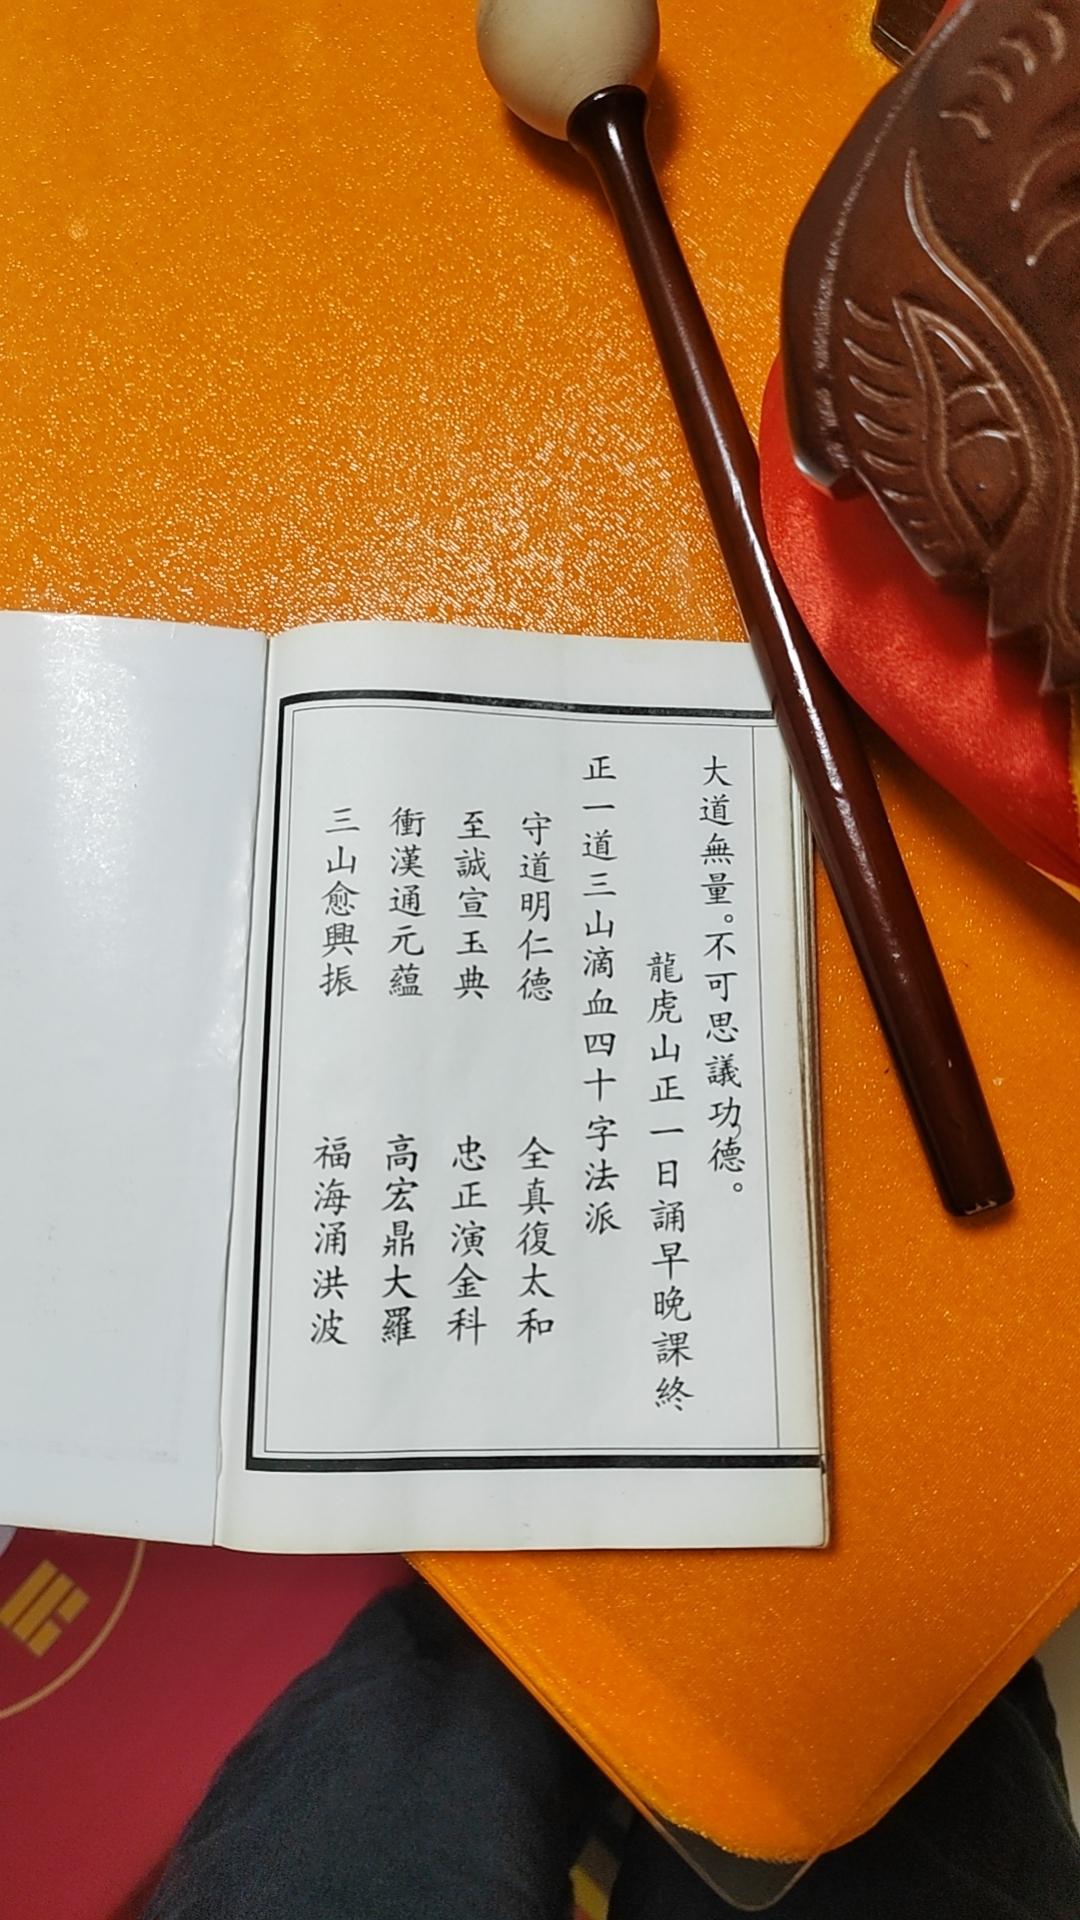 大道無量。不可思議功德。
龍虎山正一日誦早晚課終
正一道三山滴血四十字法派
守道明仁德　全真復太和
至誠宣玉典　忠正演金科
衝漢通元蘊　高宏鼎大羅
三山愈興振　福海涌洪波